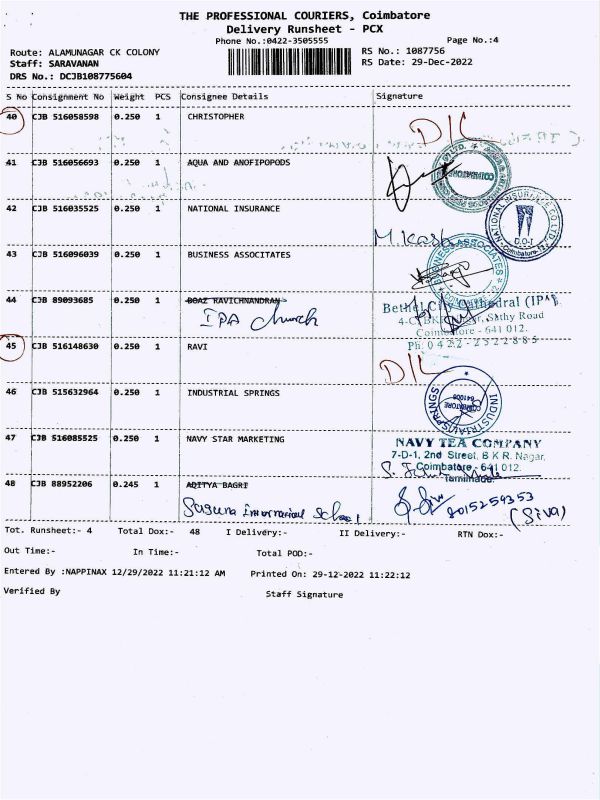 THE PROFESSIONAL COURIERS, Coimbatore
Delivery Runsheet - PCX
Phone No.:0422-3505555
Page No.:4
Route: ALAMUNAGAR CK COLONY
RS No.: 1087756
Staff: SARAVANAN
RS Date: 29-Dec-2022
DRS No.: DCJB108775604
S No Consignment No Weight PCS Consignee Details Signature
40 CJB 516058598 0.250 1 CHRISTOPHER D/L
41 CJB 516056693 0.250 1 AQUA AND ANOFIPOPODS
COIMBATORE
42 CJB 516035525 0.250 1 NATIONAL INSURANCE
NATIONAL INSURANCE CO LTD
D.O-I
Coimbatore
43 CJB 516096039 0.250 1 BUSINESS ASSOCITATES
BUSINESS ASSOCIATES
44 CJB 89093685 0.250 1 BOAZ RAVICHNANDRAN
IPA church
Bethel City Cathedral (IPA)
Sathy Road
Coimbatore - 641 012.
Ph: 0422-2522885
45 CJB 516148630 0.250 1 RAVI D/L
46 CJB 515632964 0.250 1 INDUSTRIAL SPRINGS
INDUSTRIAL SPRINGS
COIMBATORE
641006
47 CJB 516085525 0.250 1 NAVY STAR MARKETING
NAVY TEA COMPANY
7-D-1, 2nd Street, B K R. Nagar,
Coimbatore - 641 012.
Tamilnadu.
48 CJB 88952206 0.245 1 ADITYA BAGRI
Suguna International School
(Siva)
Tot. Runsheet:- 4 Total Dox:- 48 I Delivery:- II Delivery:- RTN Dox:-
Out Time:- In Time:- Total POD:-
Entered By :NAPPINAX 12/29/2022 11:21:12 AM Printed On: 29-12-2022 11:22:12
Verified By Staff Signature